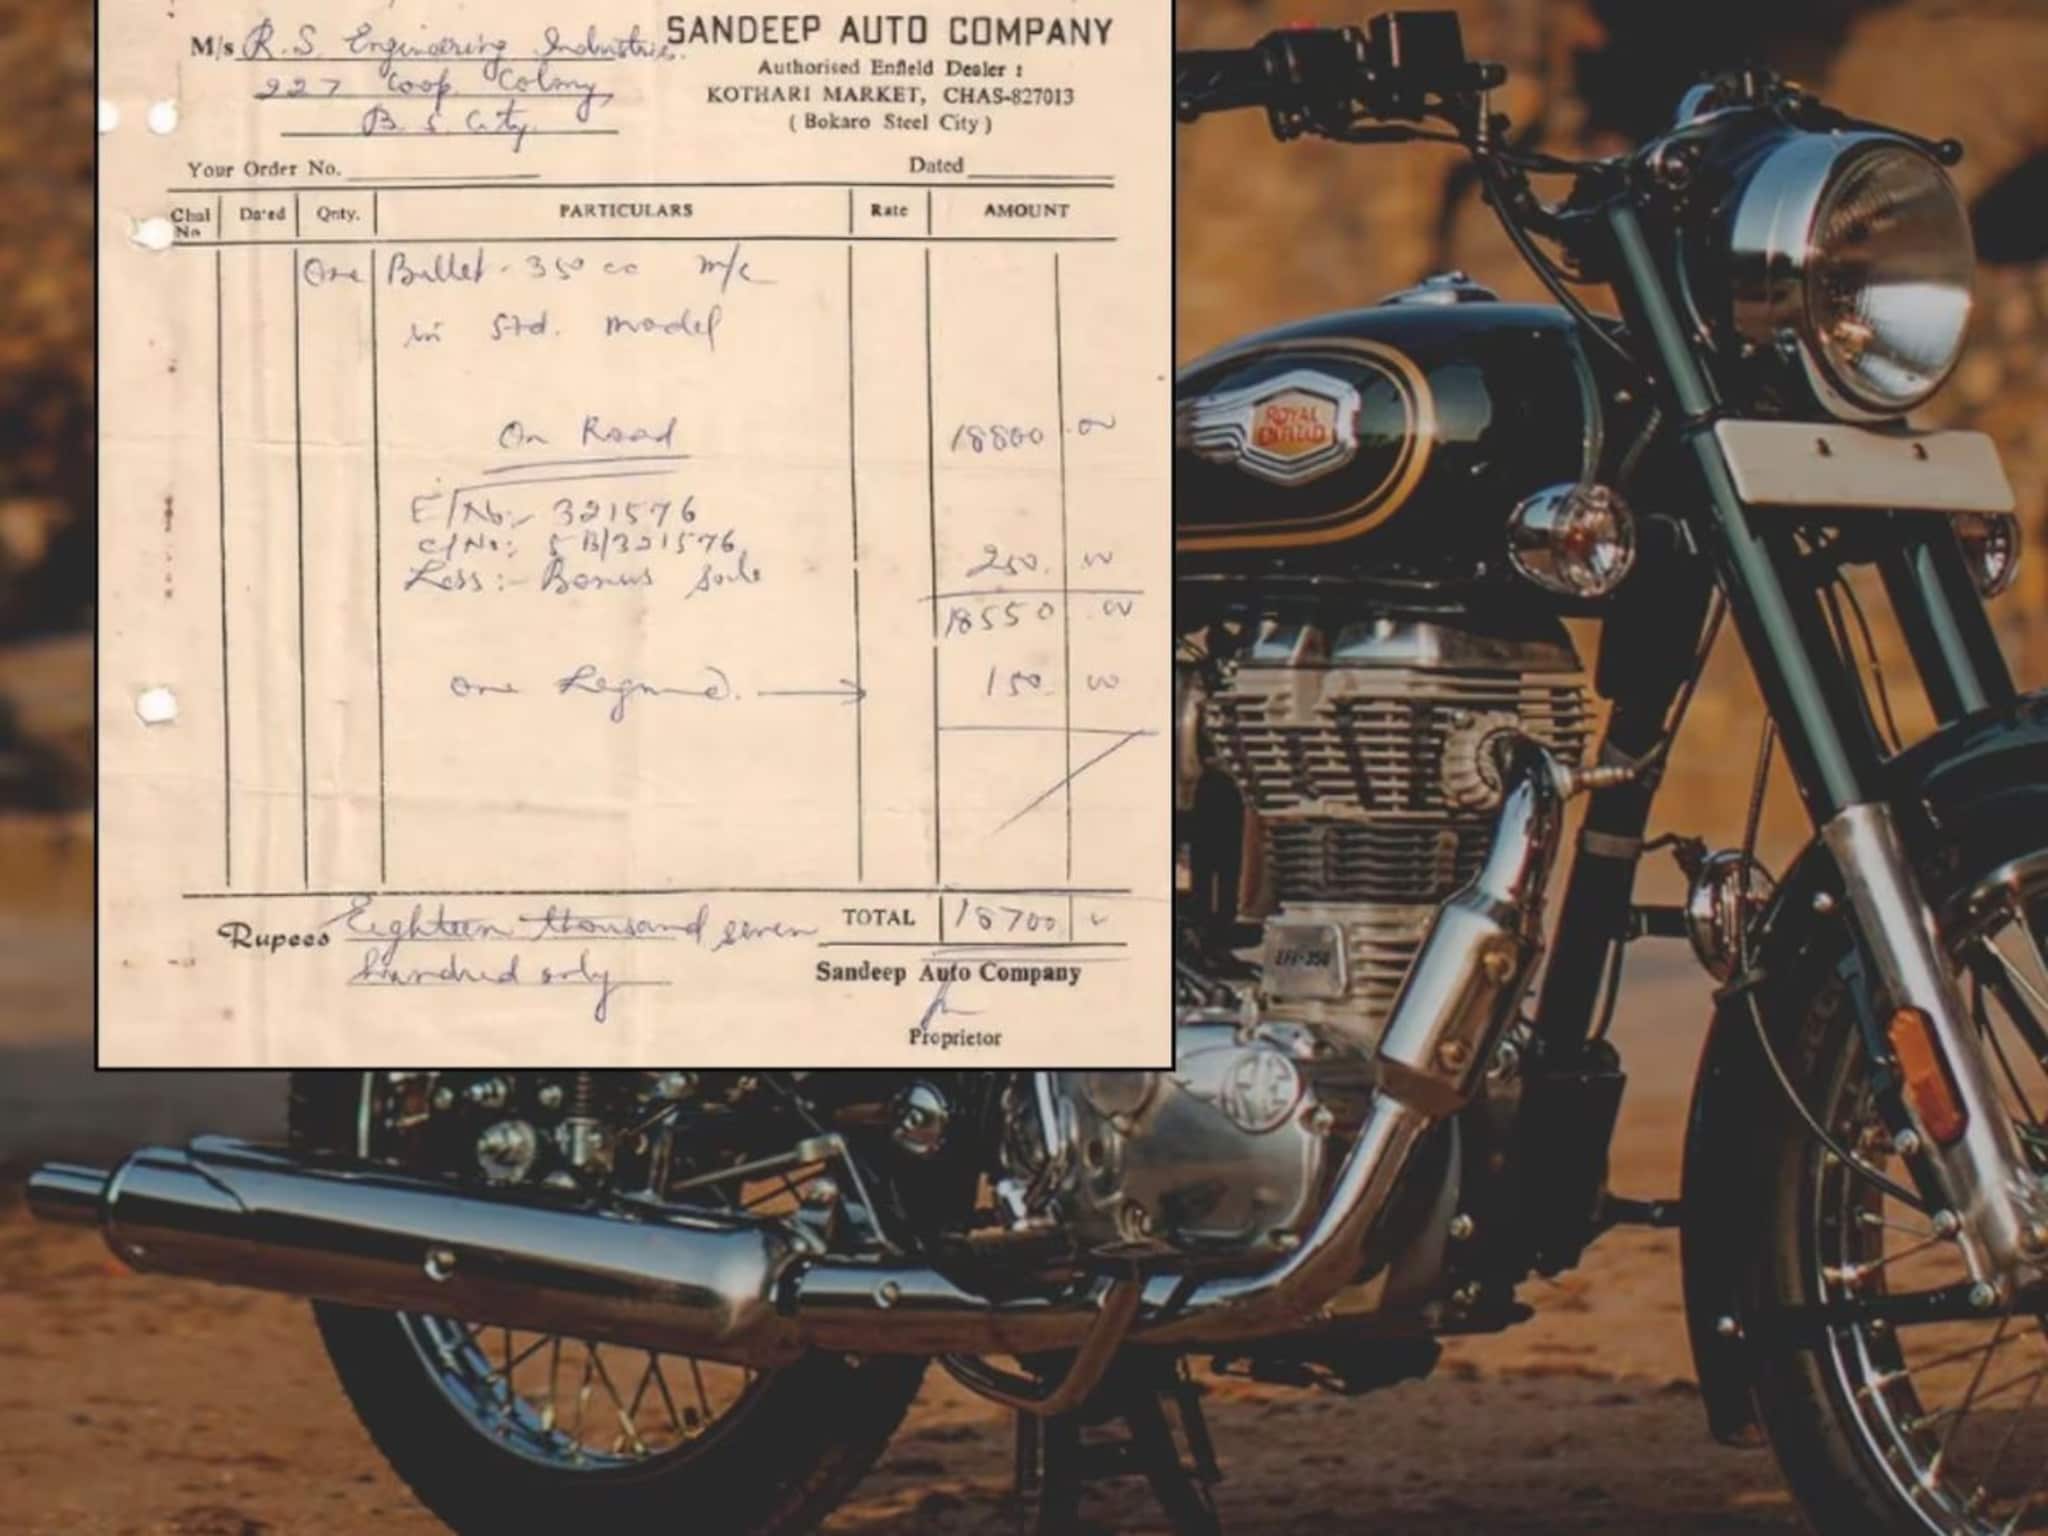 M/s R.S. Engineering Industries.
227 Coop. Colony,
B. S. City.
SANDEEP AUTO COMPANY
Authorised Enfield Dealer :
KOTHARI MARKET, CHAS-827013
( Bokaro Steel City )
Your Order No.
Dated
Chal No Dated Qnty. PARTICULARS Rate AMOUNT
One Bullet - 350 cc m/c
in std. model
On Road 18800.00
E/No:- 321576
C/No:- 5 B/321576
Less:- Bonus sale 250.00
18550.00
one Legend. 150.00
Rupees Eighteen thousand seven TOTAL 18700
hundred only
Sandeep Auto Company
Proprietor
ROYAL
ENFIELD
EFI-350